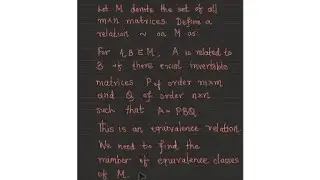 Let M denote the set of all
m×n matrices. Define a
relation ~ on M as
For A,B ∈ M, A is related to
B if there exist invertible
matrices P of order m×m
and Q of order n×n
such that A = PBQ.
This is an equivalence relation
We need to find the
number of equivalence classes
of M.